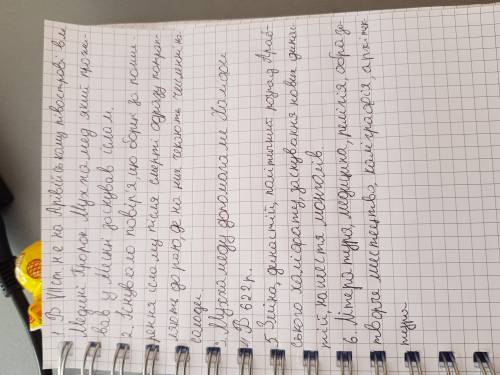 1. В VII ст. не на Аравійському півострові в м.
Медині Пророк Мухаммед який прожи-
вав у Мекці заснував іслам.
2. Існувало повір'я що борці за поши-
рення ісламу після смерті одразу потрап-
ляють до раю, де на них чекають численні на-
солоди
3. Мухаммеду допомагали Халіфи
4. В 622 р.
5. Зміна династій, політичний розпад Араб-
ського халіфату, заснування нових динас-
тій, нашестя монголів.
6. Література, медицина, релігія, образо-
творче мистецтво, каліграфія, архітек
тура.